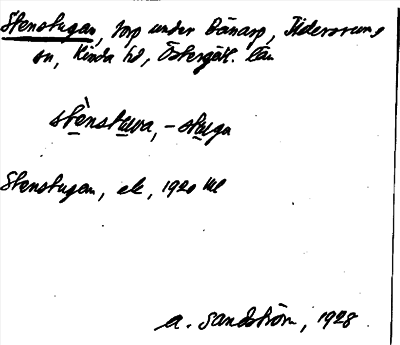 Stenstugan, torp under Bänarp, Tidersrums
sn, Kinda hd, Östergötl. län
stènstuva, -stuga
Stenstugan, ek, 1920 Ml
A. Sandström, 1928